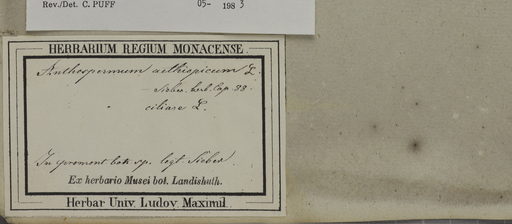 Rev./Det. C. PUFF 05- 1983
HERBARIUM REGIUM MONACENSE.
Anthospermum aethiopicum L.
— Sieber. herb. Cap. 98.
ciliare L.
In promont. bon. sp. legt Sieber.
Ex herbario Musei bot. Landishuth.
Herbar Univ. Ludov. Maximil.